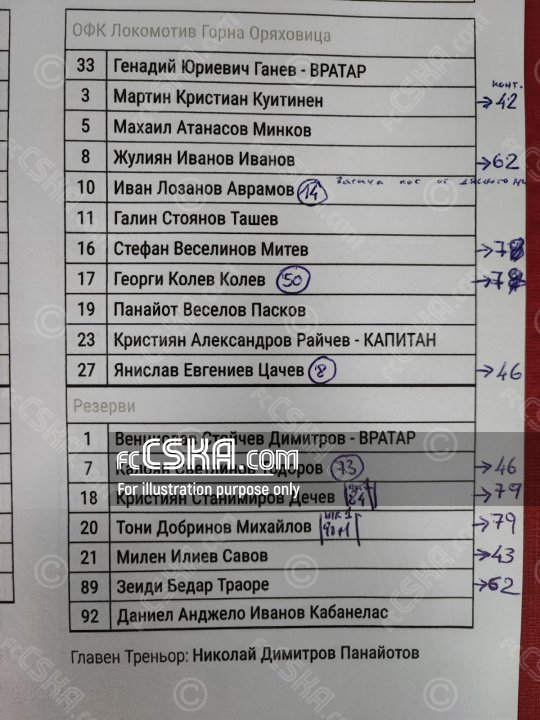 ОФК Локомотив Горна Оряховица
33 Генадий Юриевич Ганев - ВРАТАР
3 Мартин Кристиан Куитинен →42
5 Махаил Атанасов Минков
8 Жулиян Иванов Иванов →62
10 Иван Лозанов Аврамов 14
11 Галин Стоянов Ташев
16 Стефан Веселинов Митев
17 Георги Колев Колев 50
19 Панайот Веселов Пасков
23 Кристиян Александров Райчев - КАПИТАН
27 Янислав Евгениев Цачев 8 →46
Резерви
1 Венцислав Стойчев Димитров - ВРАТАР
fcCSKA.com
7 Тодоров 73 →46
For illustration purpose only
18 Кристиян Станимиров Дечев →79
20 Тони Добринов Михайлов →79
21 Милен Илиев Савов →43
89 Зеиди Бедар Траоре →62
92 Даниел Анджело Иванов Кабанелас
Главен Треньор: Николай Димитров Панайотов